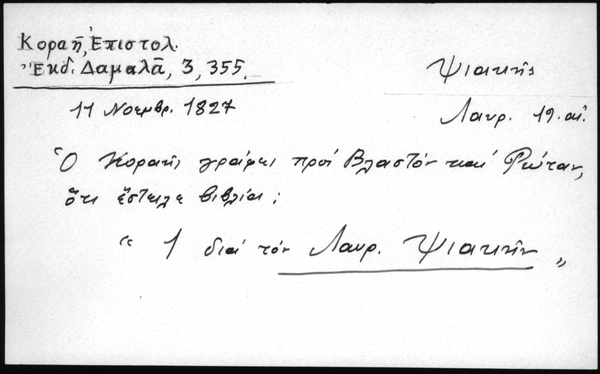 Κοραῆ, Ἐπιστολ.
Ἔκδ. Δαμαλᾶ, 3, 355.
Ψιακῆς
11 Νοεμβρ. 1827
Λαυρ. 19. αἰ.
Ὁ Κοραῆς γράφει πρός Βλαστόν καί Ρώταν,
ὅτι ἔστειλε βιβλία:
" 1 διά τόν Λαυρ. Ψιακήν "